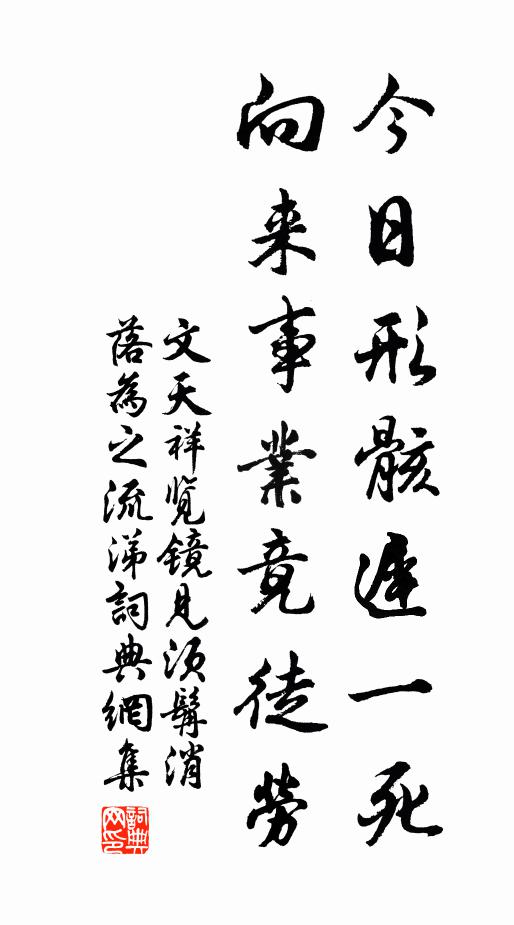 今日形骸遲一死
向来事業竟徒勞
文天祥覽鏡見須髯消
落為之流涕詞典網集
詞典网印